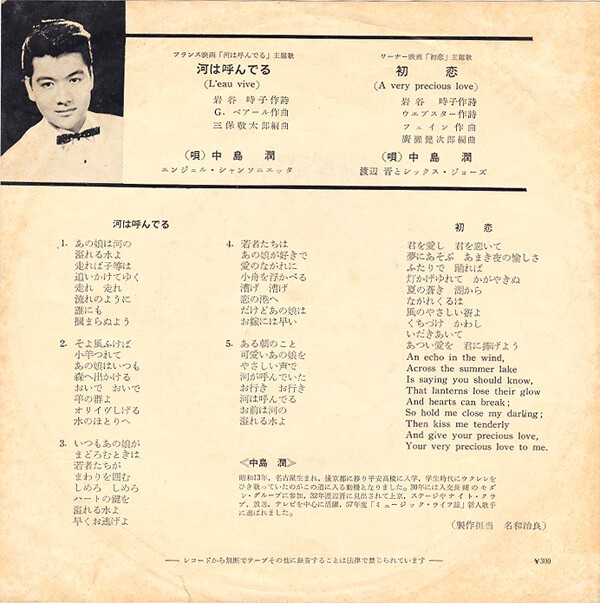 フランス映画「河は呼んでる」主題歌
河は呼んでる
(L'eau vive)
岩谷 時子作詩
G. ベアール作曲
三保敬太郎編曲
(唄)中島 潤
エンジェル・シャンソニエッタ
ワーナー映画「初恋」主題歌
初 恋
(A very precious love)
岩谷 時子作詩
ウエブスター作詩
フェイン作曲
廣瀬健次郎編曲
(唄)中島 潤
渡辺 晋とシックス・ジョーズ
河は呼んでる
1. あの娘は河の
溢れる水よ
走れば子等は
追いかけてゆく
走れ 走れ
流れのように
誰にも
掴まらぬよう
2. そよ風ふけば
小羊つれて
あの娘はいつも
森へ出かける
おいで おいで
羊の群よ
オリイヴしげる
水のほとりへ
3. いつもあの娘が
まどろむときは
若者たちが
まわりを囲む
しめろ しめろ
ハートの鍵を
溢れる水よ
早くお逃げよ
4. 若者たちは
あの娘が好きで
愛のながれに
小舟を浮かべる
漕げ 漕げ
恋の港へ
だけどあの娘は
お嫁には早い
5. ある朝のこと
可愛いあの娘を
やさしい声で
河が呼んでいた
お行き お行き
河は呼んでる
お前は河の
溢れる水よ
初 恋
君を愛し 君を恋いて
夢にあそぶ あまき夜の愉しさ
ふたりで 踊れば
灯かげゆれて かがやきぬ
夏の蒼き 湖から
ながれくるは
風のやさしい谺よ
くちづけ かわし
いだきあいて
あつい愛を 君に捧げよう
An echo in the wind,
Across the summer lake
Is saying you should know,
That lanterns lose their glow
And hearts can break;
So hold me close my darling;
Then kiss me tenderly
And give your precious love,
Your very precious love to me.
≪中島 潤≫
昭和13年、名古屋生まれ、後京都に移り平安高校に入学、学生時代にウクレレを
ひき歌っていたのがこの道に入る動機となりました。30年には入交長輔のモダ
ン・グループに参加、32年渡辺晋に見出されて上京、ステージやナイト・クラ
ブ、放送、テレビを中心に活躍、57年度「ミュージック・ライフ誌」新人歌手
に選ばれました。
(製作担当 名和治良)
── レコードから無断でテープその他に録音することは法律で禁じられています ──
¥300